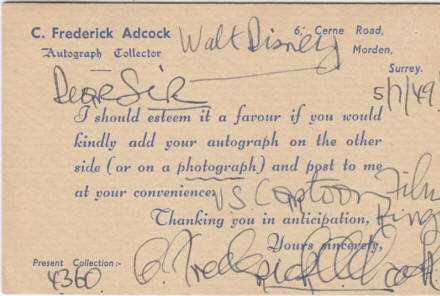 C. Frederick Adcock Walt Disney 6, Cerne Road,
Autograph Collector Morden,
Surrey.
Dear Sir 5/7/49
I should esteem it a favour if you would
kindly add your autograph on the other
side (or on a photograph) and post to me
at your convenience, US Cartoon Film
King
Thanking you in anticipation,
Yours sincerely,
Present Collection:- C. Frederick Adcock
4360.